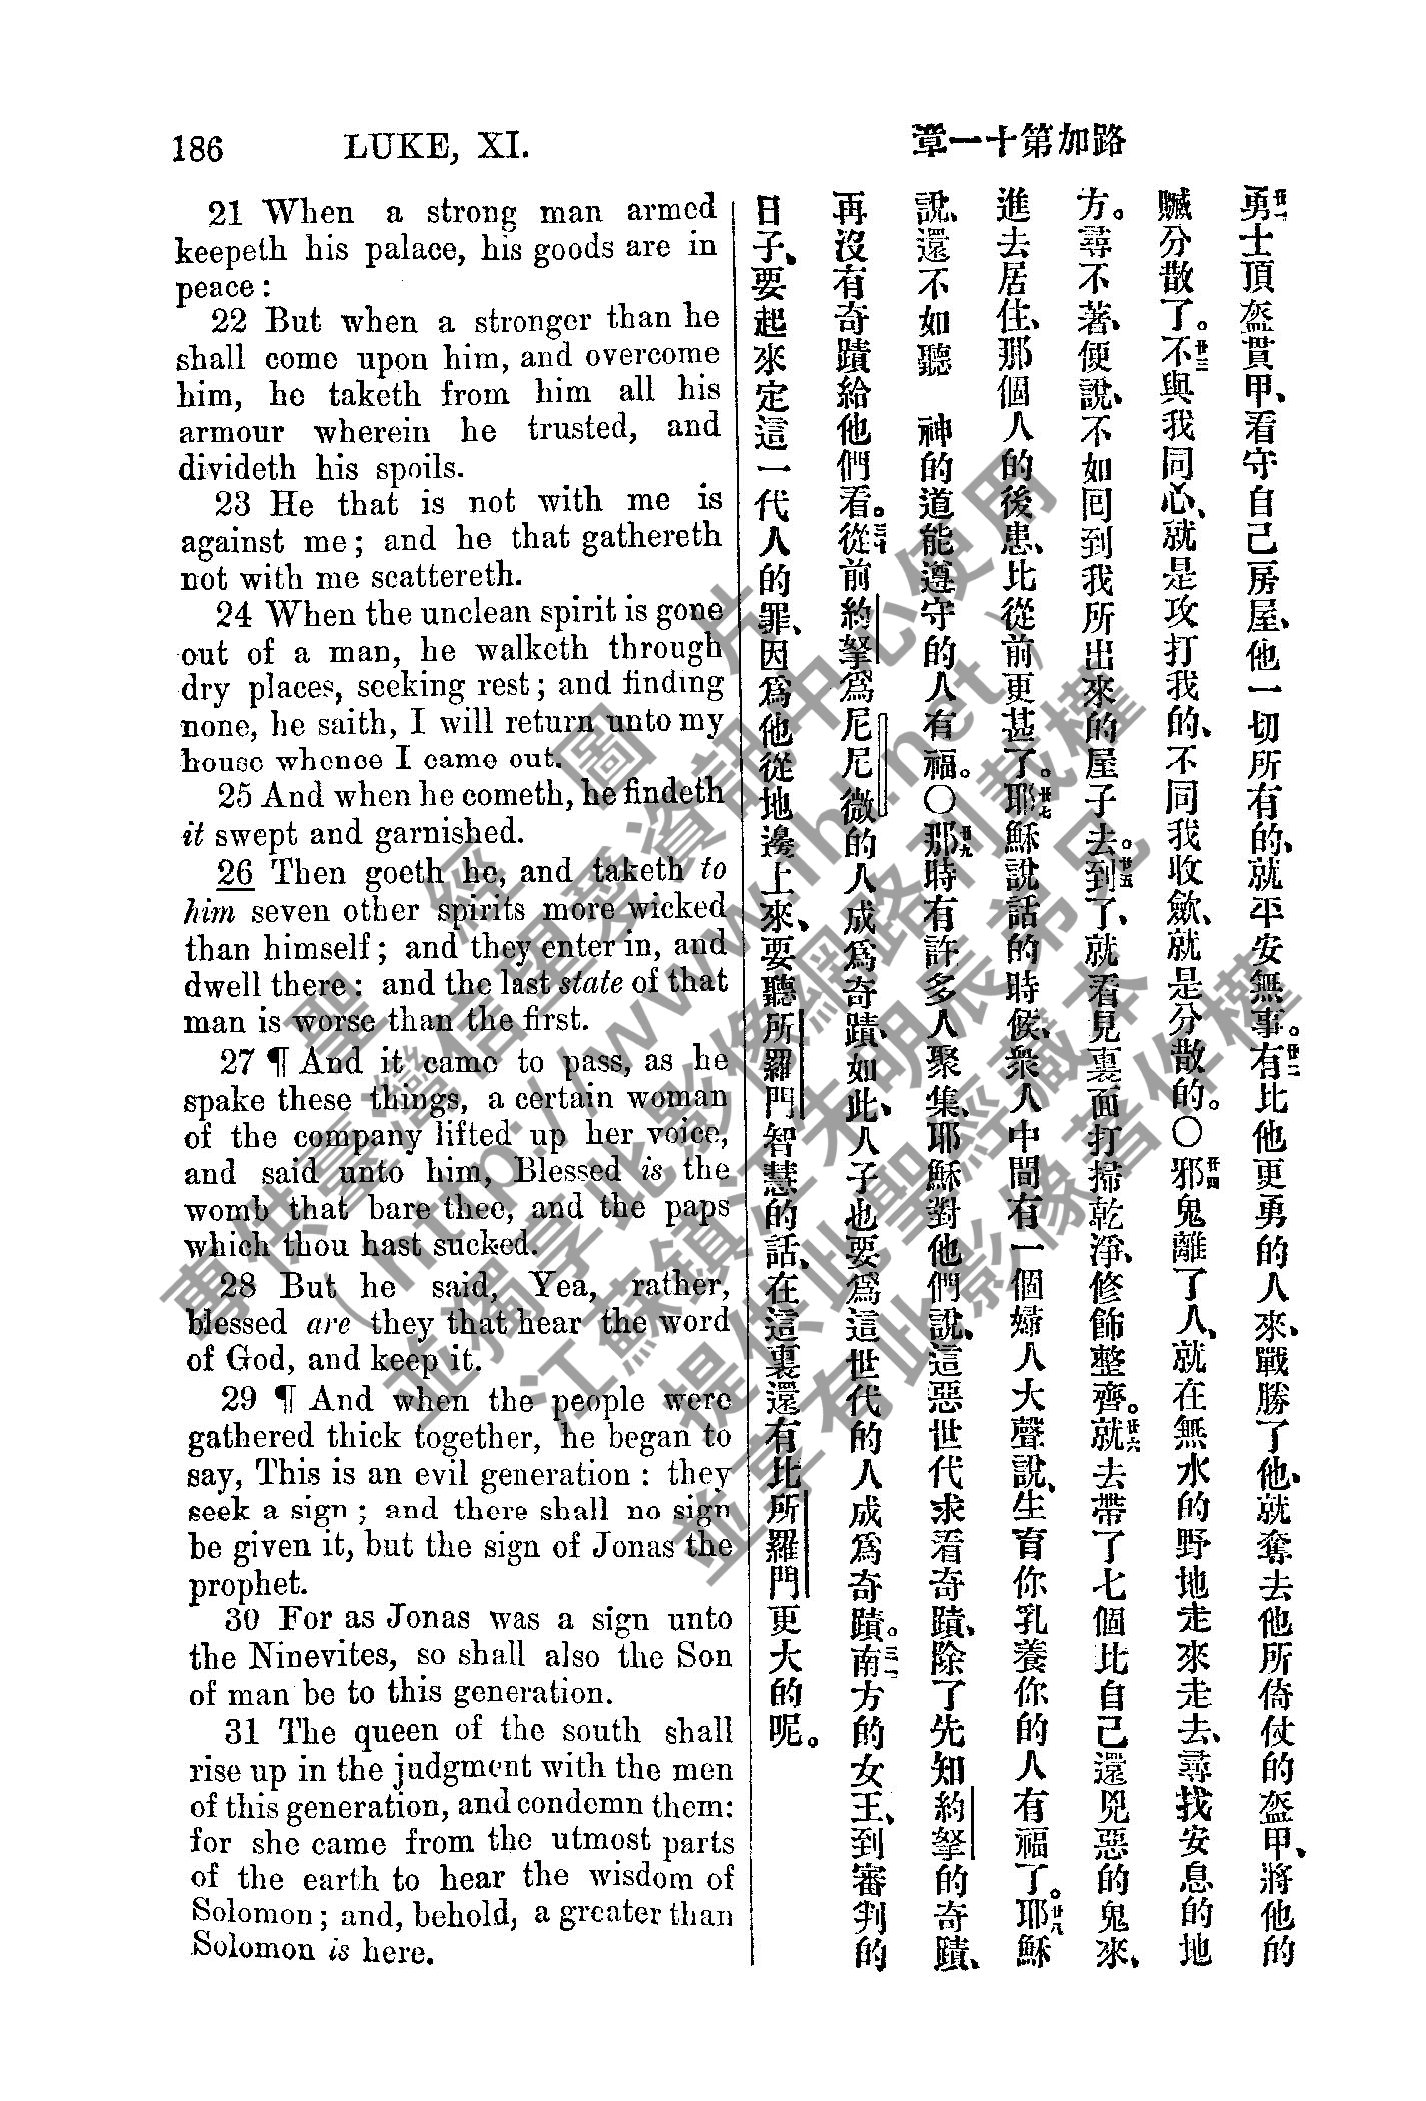 186 LUKE, XI.
路加第十一章
21 When a strong man armed
keepeth his palace, his goods are in
peace:
22 But when a stronger than he
shall come upon him, and overcome
him, he taketh from him all his
armour wherein he trusted, and
divideth his spoils.
23 He that is not with me is
against me; and he that gathereth
not with me scattereth.
24 When the unclean spirit is gone
out of a man, he walketh through
dry places, seeking rest; and finding
none, he saith, I will return unto my
house whence I came out.
25 And when he cometh, he findeth
it swept and garnished.
26 Then goeth he, and taketh to
him seven other spirits more wicked
than himself; and they enter in, and
dwell there: and the last state of that
man is worse than the first.
27 ¶ And it came to pass, as he
spake these things, a certain woman
of the company lifted up her voice,
and said unto him, Blessed is the
womb that bare thee, and the paps
which thou hast sucked.
28 But he said, Yea, rather,
blessed are they that hear the word
of God, and keep it.
29 ¶ And when the people were
gathered thick together, he began to
say, This is an evil generation: they
seek a sign; and there shall no sign
be given it, but the sign of Jonas the
prophet.
30 For as Jonas was a sign unto
the Ninevites, so shall also the Son
of man be to this generation.
31 The queen of the south shall
rise up in the judgment with the men
of this generation, and condemn them:
for she came from the utmost parts
of the earth to hear the wisdom of
Solomon; and, behold, a greater than
Solomon is here.
廿一勇士頂盔貫甲、看守自己房屋、他一切所有的、就平安無事。廿二有比他更勇的人來、戰勝了他、就奪去他所倚仗的盔甲、將他的
贓分散了。廿三不與我同心、就是攻打我的、不同我收斂、就是分散的。〇廿四邪鬼離了人、就在無水的野地走來走去、尋找安息的地
方。尋不著、便說、不如回到我所出來的屋子去。廿五到了、就看見裏面打掃乾淨、修飾整齊。廿六就去帶了七個比自己還兇惡的鬼來、
進去居住、那個人的後患、比從前更甚了。廿七耶穌說話的時候、衆人中間有一個婦人大聲說、生育你乳養你的人有福了。廿八耶穌
說、還不如聽 神的道能遵守的人有福。〇廿九那時有許多人聚集、耶穌對他們說、這惡世代求看奇蹟、除了先知約拏的奇蹟、
再沒有奇蹟給他們看。三十從前約拏爲尼尼微的人成爲奇蹟、如此、人子也要爲這世代的人成爲奇蹟。三一南方的女王、到審判的
日子、要起來定這一代人的罪、因爲他從地邊上來、要聽所羅門智慧的話、在這裏還有比所羅門更大的呢。
聖經圖片
專供臺灣信望愛資訊中心使用
（http://www.fhl.net）
並獨享此影像網路刊載權
江蘇鎮江朱明辰弟兄
提供此聖經藏本
並享有此影像著作權